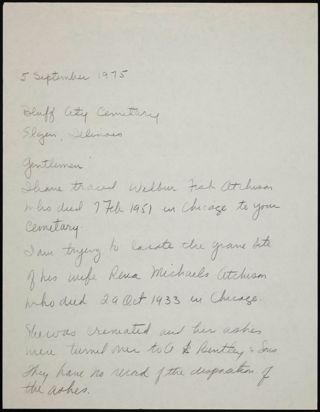 5 September 1975
Bluff City Cemetary
Elgin, Illinois
Gentlemen
I have traced Wilbur Fisk Atchison
who died 7 Feb 1951 in Chicago to your
Cemetary.
I am trying to locate the grave site
of his wife Rena Michaels Atchison
who died 29 Oct 1933 in Chicago.
She was cremated and her ashes
were turned over to & Sons
They have no record of the disposition of
the ashes.